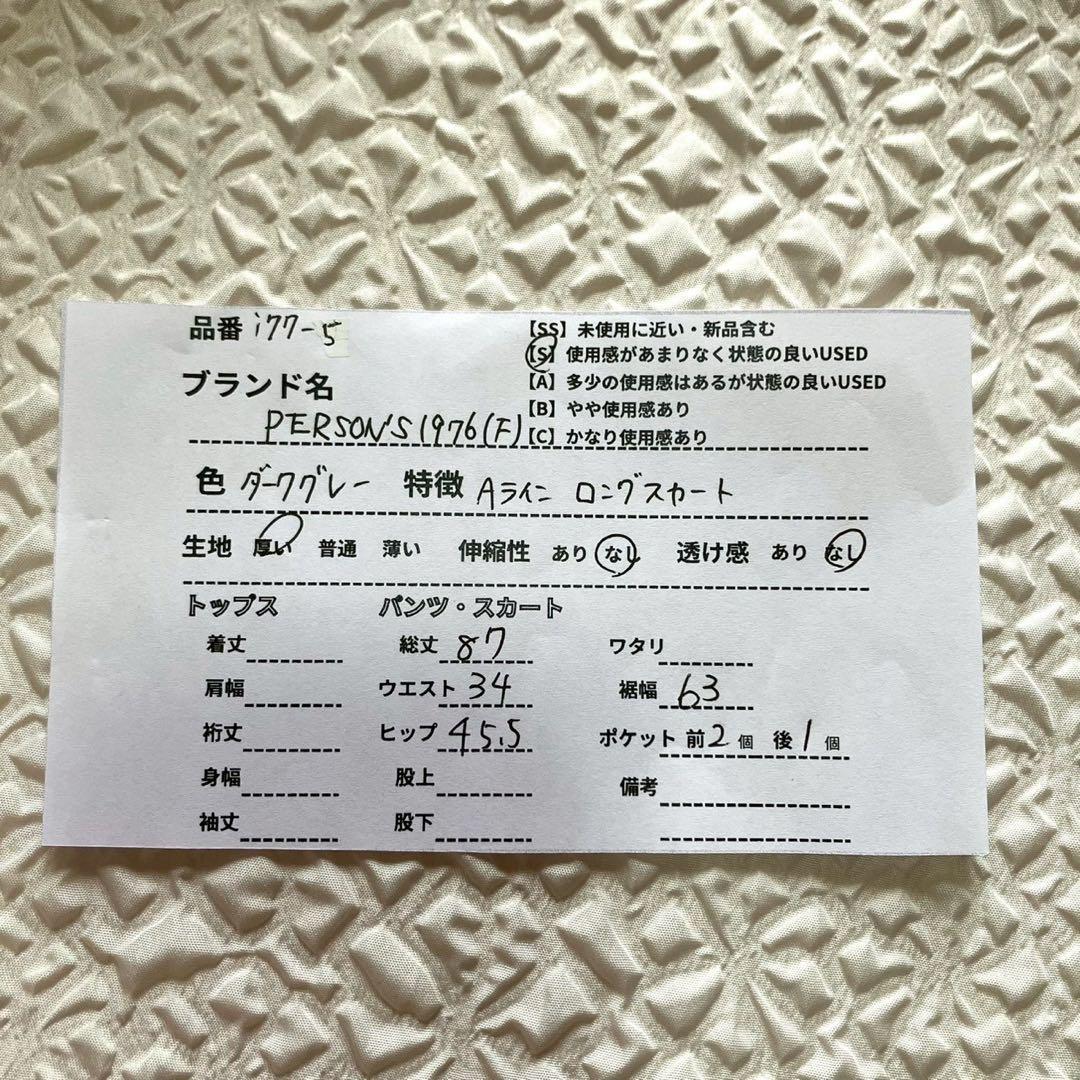 品番 i77-5
【SS】未使用に近い・新品含む
【S】使用感があまりなく状態の良いUSED
【A】多少の使用感はあるが状態の良いUSED
【B】やや使用感あり
【C】かなり使用感あり
ブランド名
PERSON'S 1976(F)
色 ダークグレー 特徴 Aライン ロングスカート
生地 厚い 普通 薄い 伸縮性 あり なし 透け感 あり なし
トップス パンツ・スカート
着丈 総丈 87 ワタリ
肩幅 ウエスト 34 裾幅 63
裄丈 ヒップ 45.5 ポケット 前2個 後1個
身幅 股上 備考
袖丈 股下